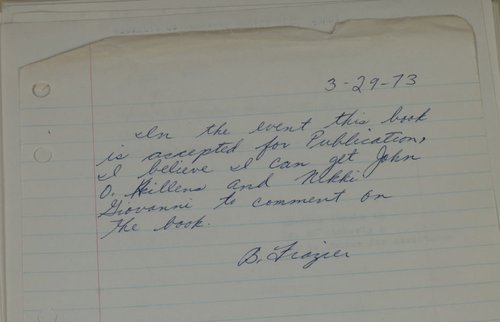 3-29-73
In the event this book
is accepted for Publication,
I believe I can get John
O. Killens and Nikki
Giovanni to comment on
the book.
B. Frazier